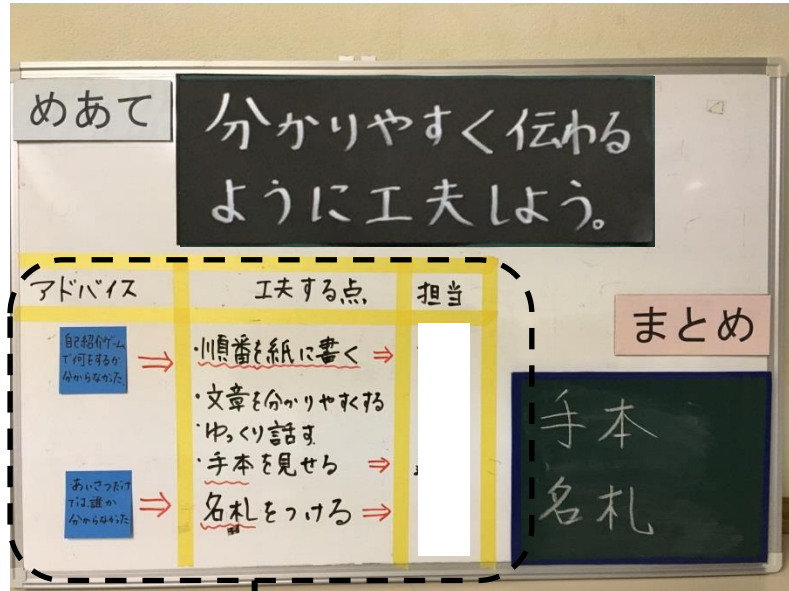 めあて
分かりやすく伝わる
ように工夫しよう。
アドバイス
工夫する点
担当
自己紹介ゲーム
で何をするか
分からなかった
⇒
・順番を紙に書く ⇒
・文章を分かりやすくする
・ゆっくり話す
・手本を見せる ⇒
あいさつだけ
では誰か
分からなかった
⇒
名札をつける ⇒
まとめ
手本
名札